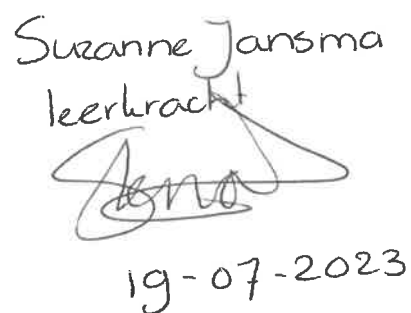 Suzanne Jansma
leerkracht
19-07-2023